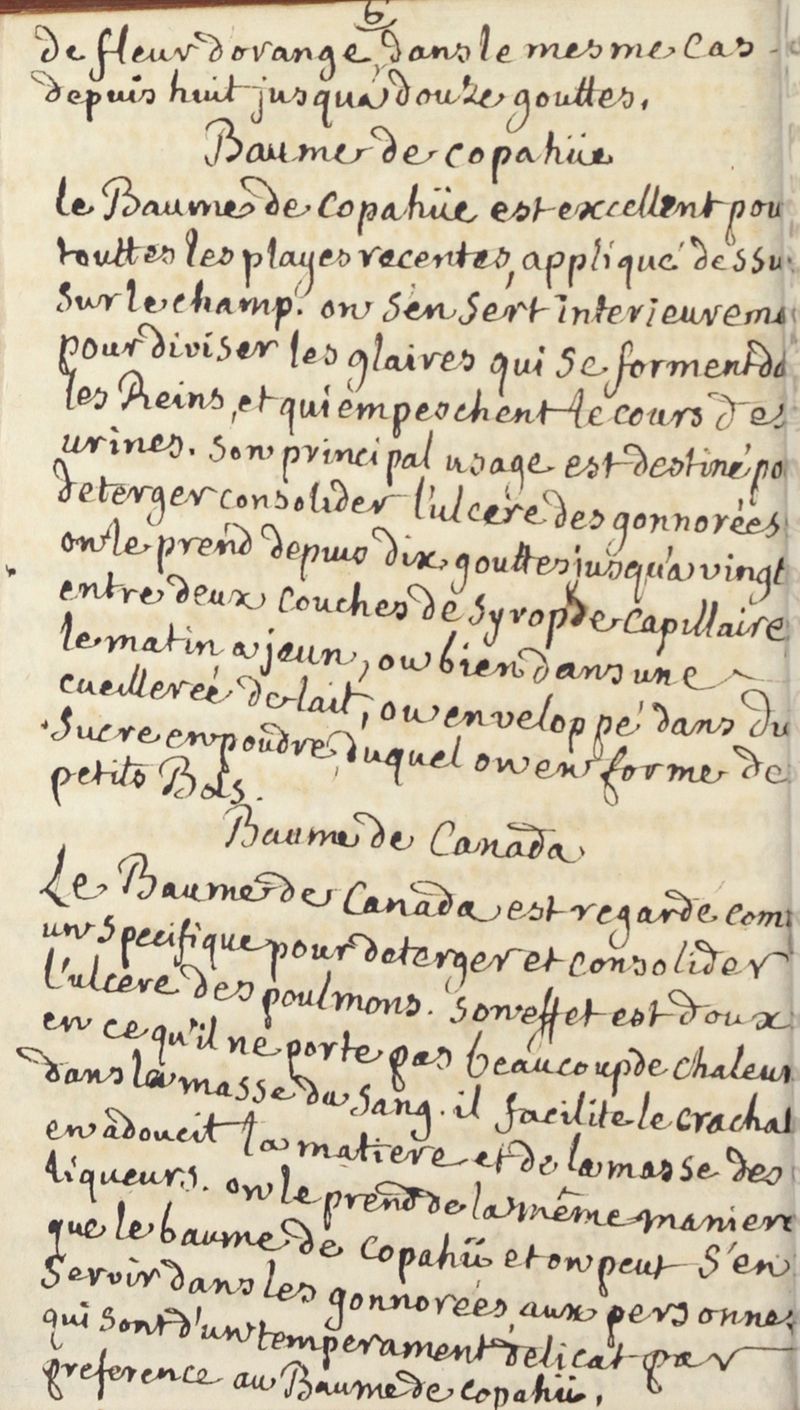 6
de fleur dorange dans le mesme cas -
depuis huit jusqua douze gouttes.
Baume de copahüe
le Baume de Copahüe est excellent pou
touttes les playes recentes, appliqué dessu
sur le champ. on sen sert interieurem
pour diviser les glaires qui se forment da
les Reins, et qui empeschent le cours des
urines. son principal usage est destiné po
deterger consolider l'ulcere des gonnorées
on le prend depuis dix gouttes jusqu'a vingt
entre deux couches de syrop de Capillaire
le matin a jeun, ou bien dans une
cueillereé de lait, ou enveloppé dans du
sucre en poudre, duquel on en forme de
petits Bols.
Baume de Canada
Le Baume de Canada est regardé com
un specifique pour deterger et consolider
l'ulcere des poulmons. son effet est doux
en ce qu'il ne porte pas beaucoup de chaleur
dans la masse du sang. il facilite le crachat
en adoucit la matiere et de la masse des
liqueurs. on le prend de la même maniere
que le baume de Copahü et on peut s'en
servir dans les gonnorées, aux personnes
qui sont d'un temperament delicat par
preference au Baume de copahü.